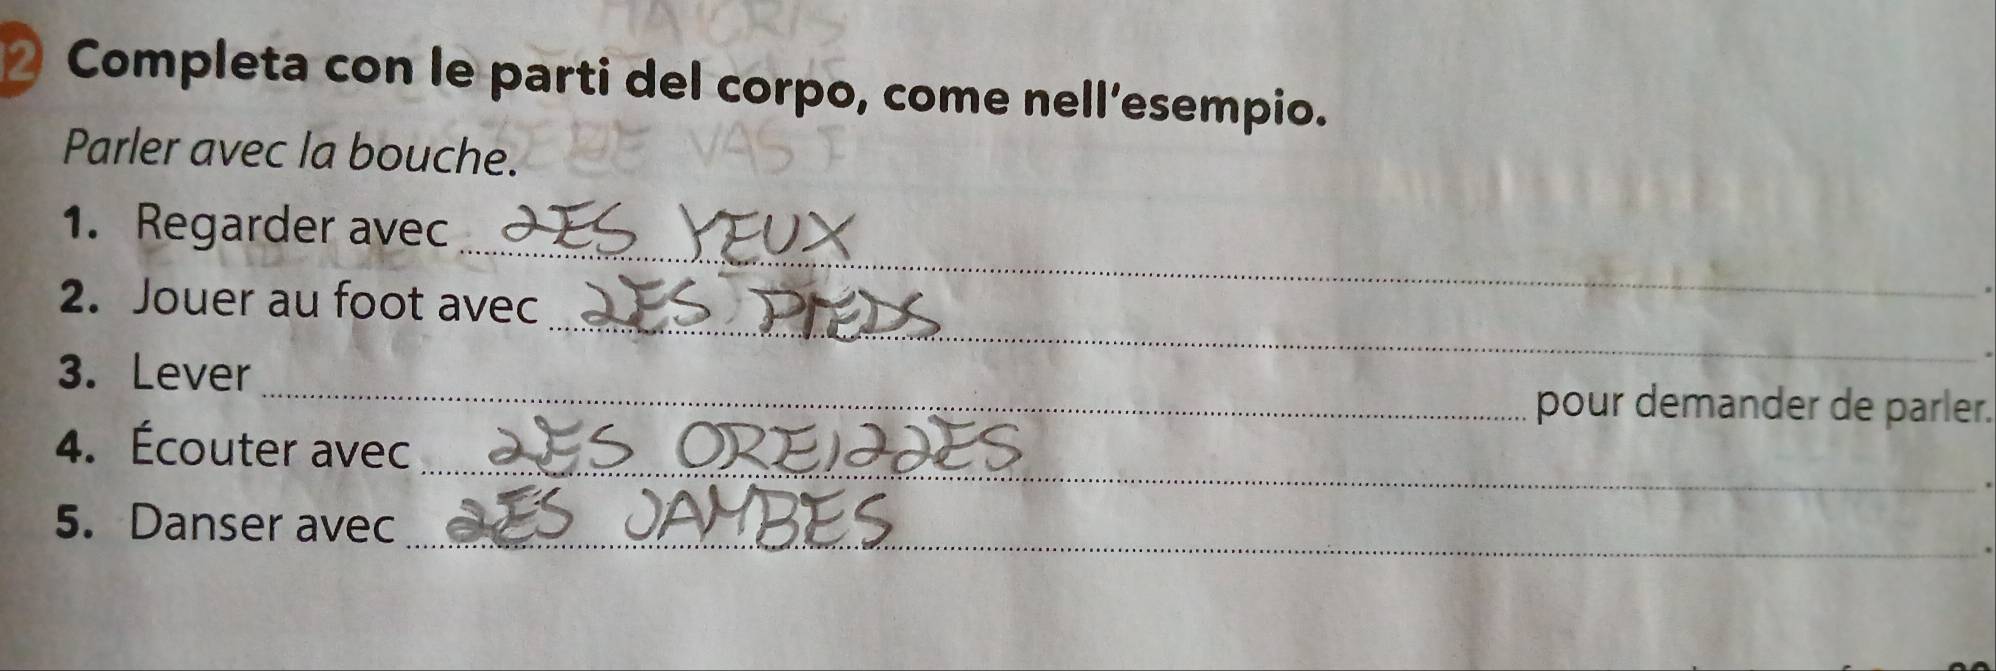 12 Completa con le parti del corpo, come nell'esempio.
Parler avec la bouche.
1. Regarder avec LES YEUX.
2. Jouer au foot avec LES PIEDS.
3. Lever pour demander de parler.
4. Écouter avec LES OREILLES.
5. Danser avec LES JAMBES.